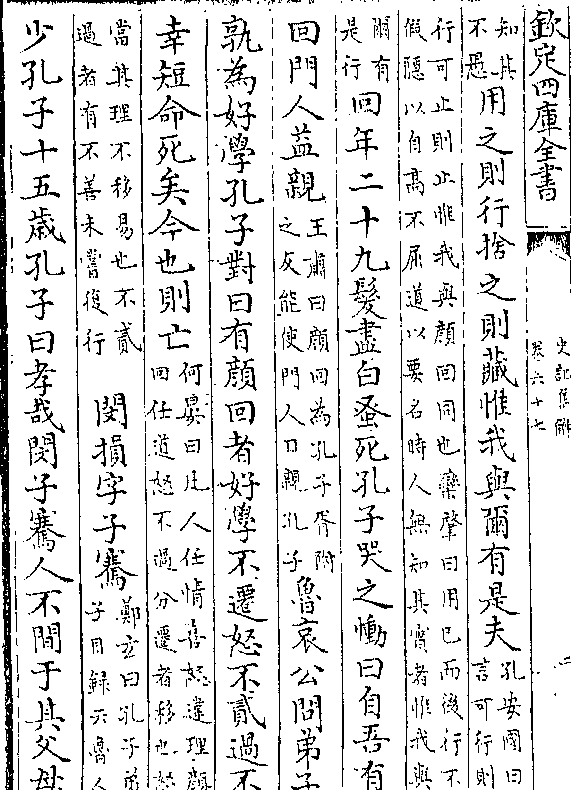 欽定四庫全書
史記集解
卷六十七
知其不愚用之則行捨之則藏惟我與爾有是夫孔安國曰言可行則
行可止則止惟我與顔回同也欒肇曰用己而後行不假隱以自高不屈道以要名時人無知其實者惟我與
爾有是行回年二十九髮盡白蚤死孔子哭之慟曰自吾有
回門人益親王肅曰顔回為孔子胥附之友能使門人日親孔子魯哀公問弟子
孰為好學孔子對曰有顔回者好學不遷怒不貳過不
幸短命死矣今也則亡何晏曰凡人任情喜怒違理顔回任道怒不過分遷者移也怒
當其理不移易也不貳過者有不善未嘗復行閔損字子騫鄭玄曰孔子弟子目録云魯人
少孔子十五歲孔子曰孝哉閔子騫人不間于其父母